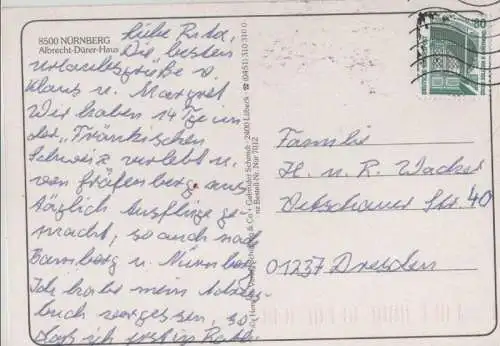 8500 NÜRNBERG
Albrecht-Dürer-Haus
Liebe Rita,
Die besten
Urlaubsgrüße v.
Klaus u. Margret
Wir haben 14 Tge in
der "Fränkischen
Schweiz verlebt u.
von Gräfenberg aus
täglich Ausflüge ge-
macht, so auch nach
Bamberg u. Nürnberg
Ich habe mein Adreß-
buch vergessen, so-
daß ich erst in
Schöning & Co · Gebrüder Schmidt · 2400 Lübeck · ☎ (0451) 310 310
Bestell-Nr. Nür 7012
80
Familie
H. u. R. Wacker
Str 40
01237 Dresden